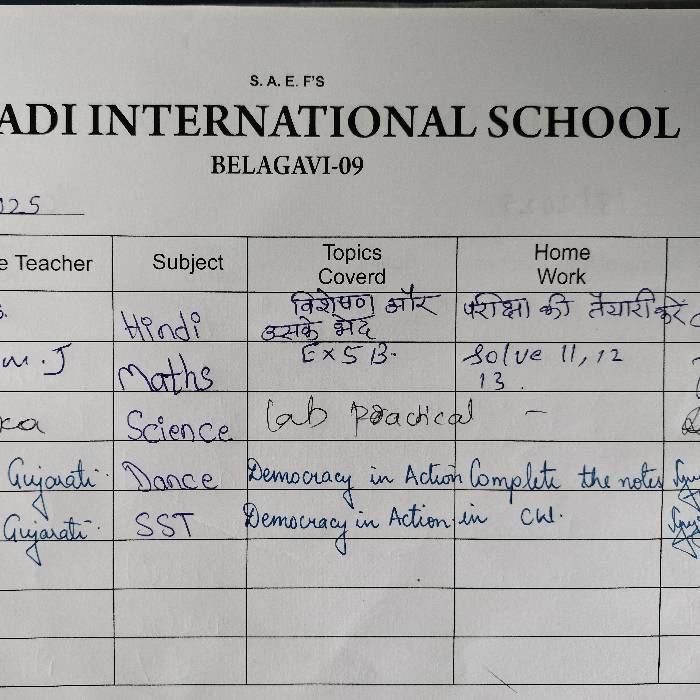 S. A. E. F'S
ADI INTERNATIONAL SCHOOL
BELAGAVI-09
025
e Teacher Subject Topics Coverd Home Work
Hindi विशेषण और उसके भेद परीक्षा की तैयारी करें
m.J Maths Ex 5 B. Solve 11, 12 13.
ka Science Lab Practical –
Gujarati Dance Democracy in Action Complete the notes
Gujarati SST Democracy in Action in CW.